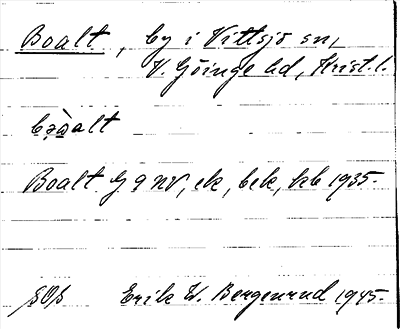 Boalt, by i Vittsjö sn,
V. Göinge hd, Krist. l.
Boalt G 9 NV, ek, bek, kb 1935.
SOS Erik W. Bergenrud 1945.